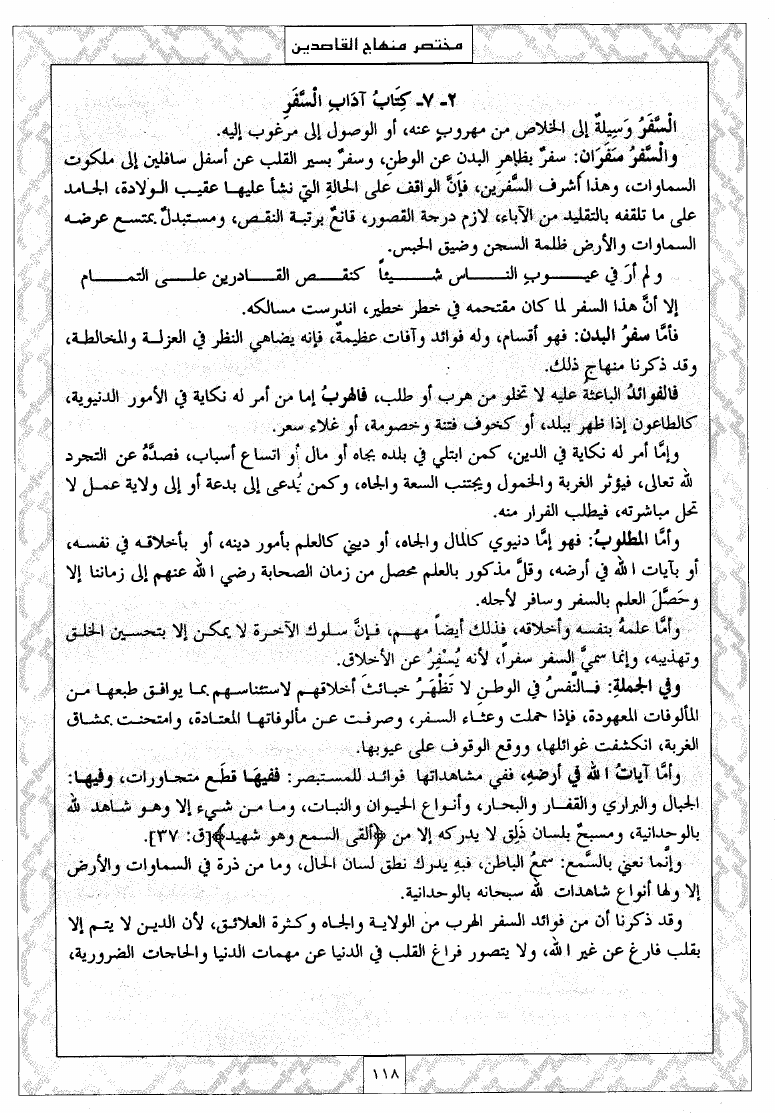 مختصر منهاج القاصدين
٢ـ ٧ـ كِتَابُ آدَابِ السَّفَرِ
السَّفَرُ وَسِيلةٌ إلى الخلاص من مهروبٍ عنه، أو الوصول إلى مرغوب إليه.
والسَّفَرُ سَفَرَانِ: سفرٌ بظاهرِ البدن عن الوطنِ، وسفرٌ بسير القلب عن أسفل سافلين إلى ملكوت
السماوات، وهذا أشرف السَّفَرين، فإنَّ الواقف على الحالةِ التي نشأ عليها عقيب الولادة، الجامد
على ما تلقفه بالتقليد من الآباء، لازم درجة القصور، قانعٌ برتبة النقص، ومستبدلٌ بمتسع عرضه
السماوات والأرض ظلمة السجن وضيق الحبس.
ولم أرَ في عيـوبِ النـاس شـيئاً كنقـص القـادرين علـى التمـام
إلا أنَّ هذا السفر لما كان مقتحمه في خطر خطير، اندرست مسالكه.
فأمَّا سفرُ البدن: فهو أقسام، وله فوائد وآفات عظيمةٌ، فإنه يضاهي النظر في العزلة والمخالطة،
وقد ذكرنا منهاج ذلك.
فالفوائدُ الباعثةُ عليه لا تخلو من هرب أو طلب، فالهربُ إما من أمر له نكاية في الأمور الدنيوية،
كالطاعون إذا ظهر ببلد، أو كخوف فتنة وخصومة، أو غلاء سعر.
وإمَّا أمر له نكاية في الدين، كمن ابتلي في بلده بجاه أو مال أو اتساع أسباب، فصدَّهُ عن التجرد
لله تعالى، فيؤثر الغربة والخمول ويجتنب السعة والجاه، وكمن يُدعى إلى بدعة أو إلى ولاية عمـل لا
تحل مباشرته، فيطلب الفرار منه.
وأمَّا المطلوبُ: فهو إمَّا دنيوي كالمال والجاه، أو ديني كالعلم بأمور دينه، أو بأخلاقه في نفسه،
أو بآيات الله في أرضه، وقلَّ مذكور بالعلم محصل من زمان الصحابة رضي الله عنهم إلى زماننا إلا
وحَصَّلَ العلم بالسفر وسافر لأجله.
وأمَّا علمهُ بنفسه وأخلاقه، فذلك أيضاً مهم، فإنَّ سلوك الآخرة لا يمكن إلا بتحسين الخلق
وتهذيبه، وإنما سميَّ السفر سفراً، لأنه يُسْفِرُ عن الأخلاق.
وفي الجملة: فـالنَّفسُ في الوطنِ لا تَظْهَرُ خبائثَ أخلاقهم لاستئناسهم بما يوافق طبعها من
المألوفات المعهودة، فإذا حملت وعثاء السفر، وصرفت عن مألوفاتها المعتادة، وامتحنت بمشاق
الغربة، انكشفت غوائلها، ووقع الوقوف على عيوبها.
وأمَّا آياتُ الله في أرضهِ، ففي مشاهداتها فوائد للمستبصر: ففيهَا قطَع متجاورات، وفيها:
الجبال والبراري والقفار والبحار، وأنواع الحيوان والنبات، وما من شيء إلا وهو شاهد لله
بالوحدانية، ومسبحٌ بلسان ذَلِق لا يدركه إلا من ﴿ألقى السمع وهو شهيد﴾[ق: ٣٧].
وإنَّما نعني بالسَّمع: سمعُ الباطن، فبهِ يدرك نطق لسان الحال، وما من ذرة في السماوات والأرض
إلا ولها أنواع شاهدات لله سبحانه بالوحدانية.
وقد ذكرنا أن من فوائد السفر الهرب من الولاية والجاه وكثرة العلائق، لأن الدين لا يتم إلا
بقلب فارغ عن غير الله، ولا يتصور فراغ القلب في الدنيا عن مهمات الدنيا والحاجات الضرورية،
١١٨